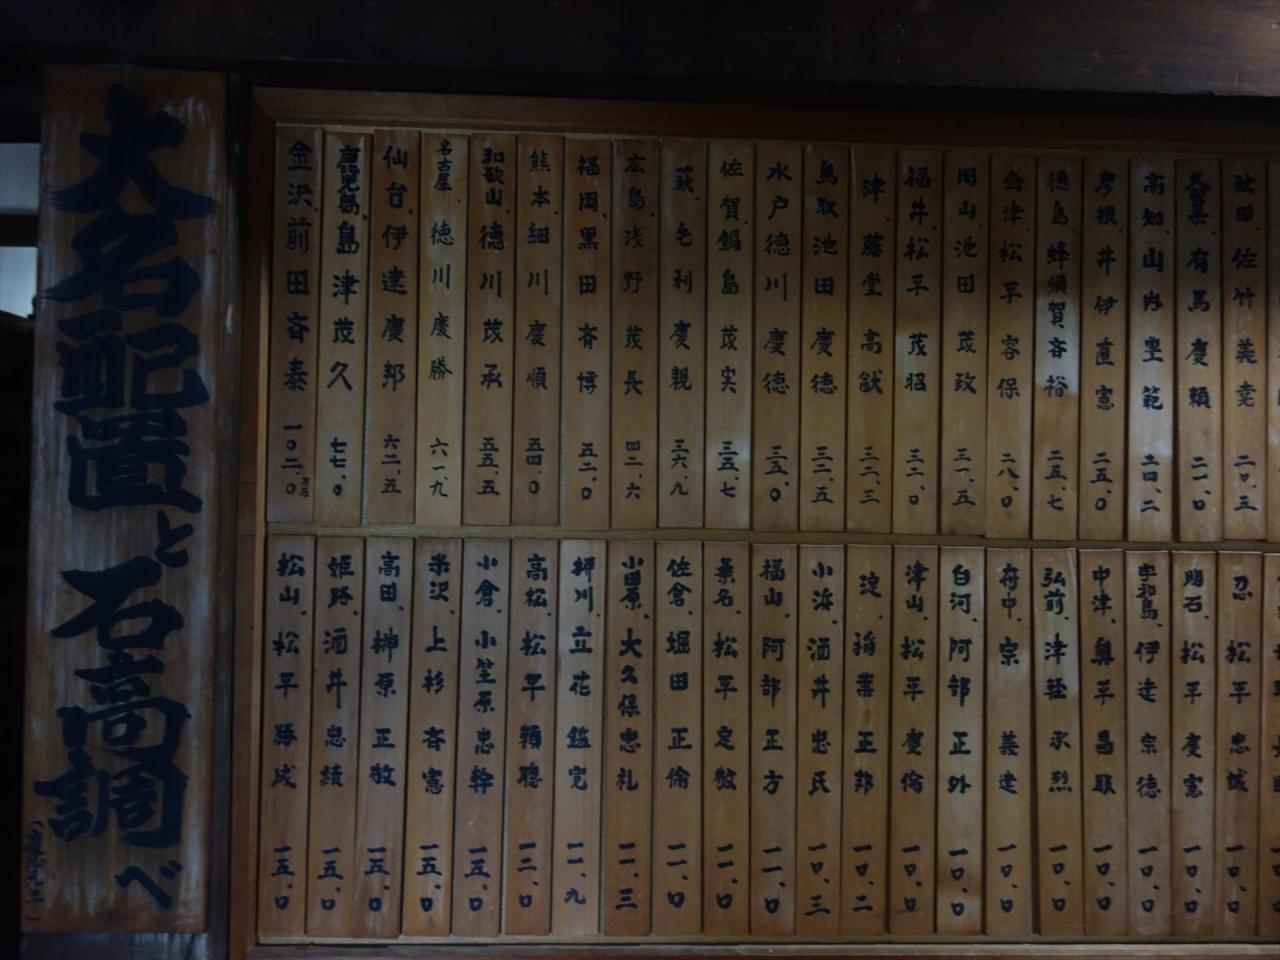 大名配置と石高調べ
金沢、前田斉泰 一〇二、〇万石
鹿児島、島津茂久 七七、〇
仙台、伊達慶邦 六二、五
名古屋 徳川慶勝 六一、九
和歌山、徳川茂承 五五、五
熊本、細川慶順 五四、〇
福岡、黒田斉博 五二、〇
広島、浅野茂長 四二、六
萩、毛利慶親 三六、九
佐賀、鍋島茂実 三五、七
水戸、徳川慶徳 三五、〇
鳥取、池田慶徳 三二、五
津、藤堂高猷 三二、三
福井、松平茂昭 三二、〇
岡山、池田茂政 三一、五
会津、松平容保 二八、〇
徳島、蜂須賀斉裕 二五、七
彦根、井伊直憲 二五、〇
高知、山内豊範 二四、二
久留米、有馬慶頼 二一、〇
秋田、佐竹義尭 二〇、五
松山、松平勝成 一五、〇
姫路、酒井忠績 一五、〇
高田、榊原正敬 一五、〇
米沢、上杉斉憲 一五、〇
小倉、小笠原忠幹 一五、〇
高松、松平頼聰 一二、〇
柳川、立花鑑寛 一一、九
小田原、大久保忠礼 一一、三
佐倉、堀田正倫 一一、〇
桑名、松平定敬 一一、〇
福山、阿部正方 一一、〇
小浜、酒井忠氏 一〇、三
淀、稲葉正邦 一〇、二
津山、松平慶倫 一〇、〇
白河、阿部正外 一〇、〇
府中、宗義達 一〇、〇
弘前、津軽承烈 一〇、〇
中津、奥平昌服 一〇、〇
宇和島、伊達宗徳 一〇、〇
明石、松平慶憲 一〇、〇
忍、松平忠誠 一〇、〇